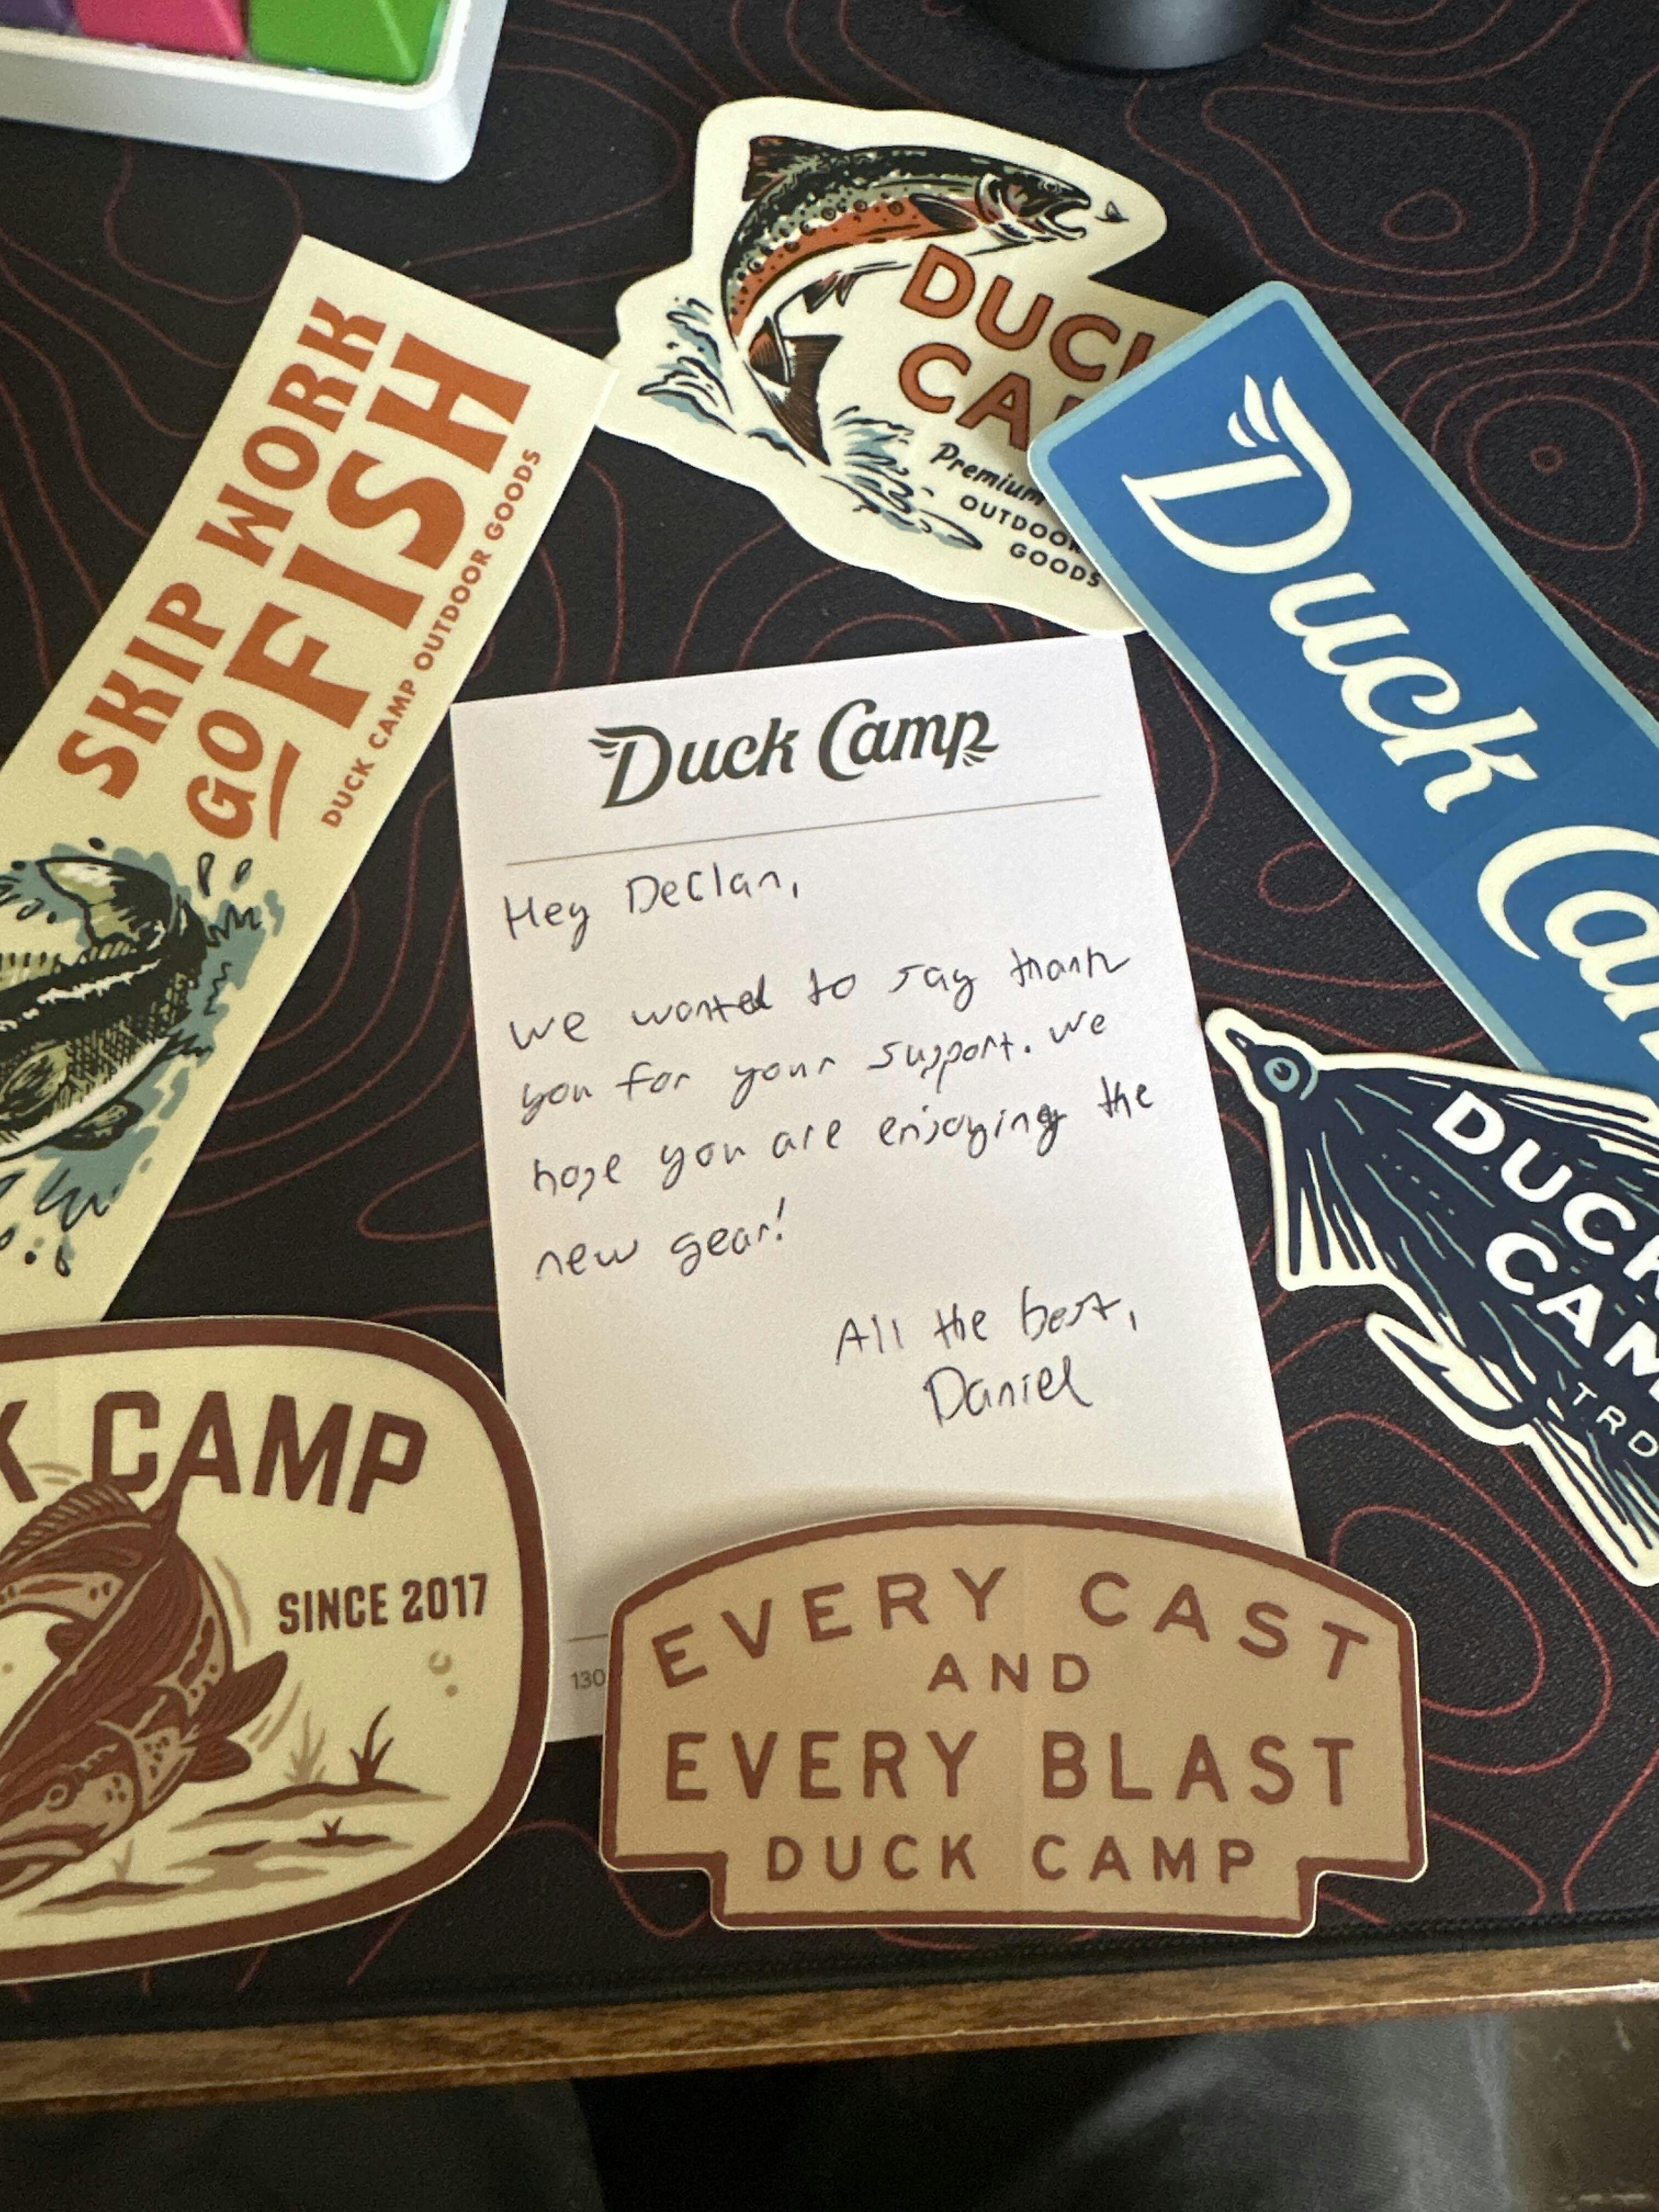 SKIP WORK
GO FISH
DUCK CAMP OUTDOOR GOODS
DUCK
CA
Premium
OUTDOOR
GOODS
Duck Cam
Duck Camp
Hey Declan,
We wanted to say thank
you for your support. We
hope you are enjoying the
new gear!
All the best,
Daniel
130
DUCK
CAM
TRD
K CAMP
SINCE 2017
EVERY CAST
AND
EVERY BLAST
DUCK CAMP